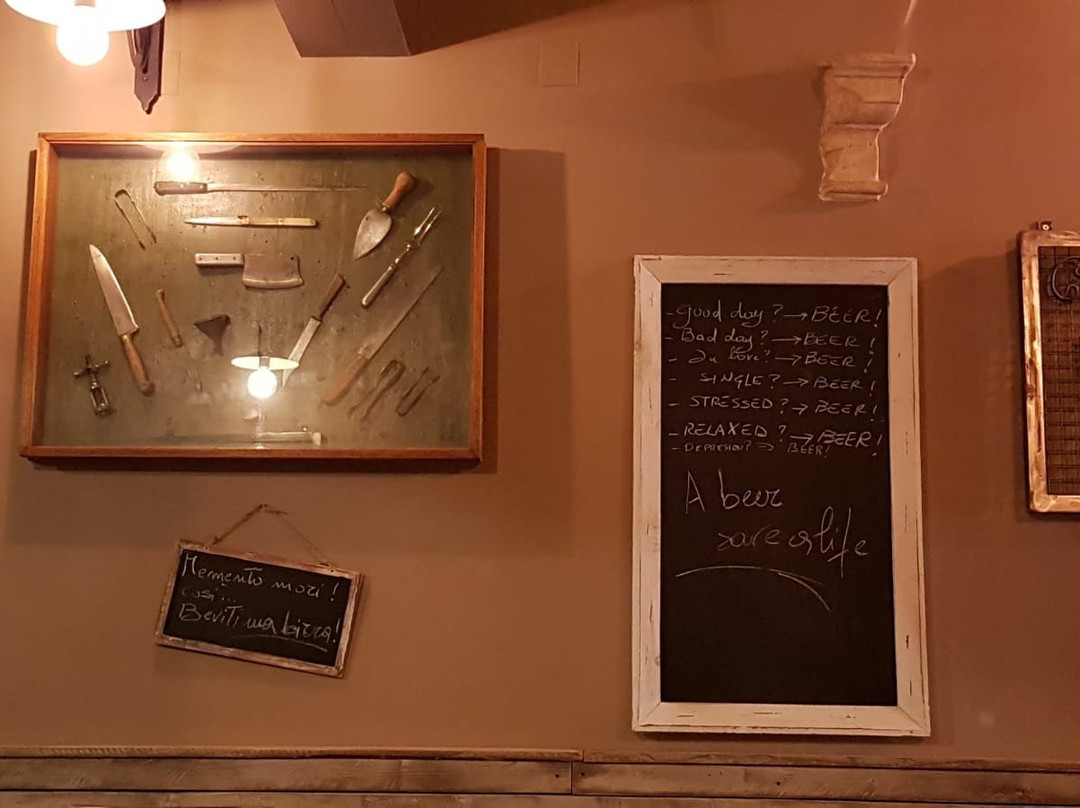 Memento mori!
così...
Beviti una birra!
- Good day? → BEER!
- Bad day? → BEER!
- In love? → BEER!
- SINGLE? → BEER!
- STRESSED? → BEER!
- RELAXED? → BEER!
- DEPRESION? → BEER!
A beer
save a life